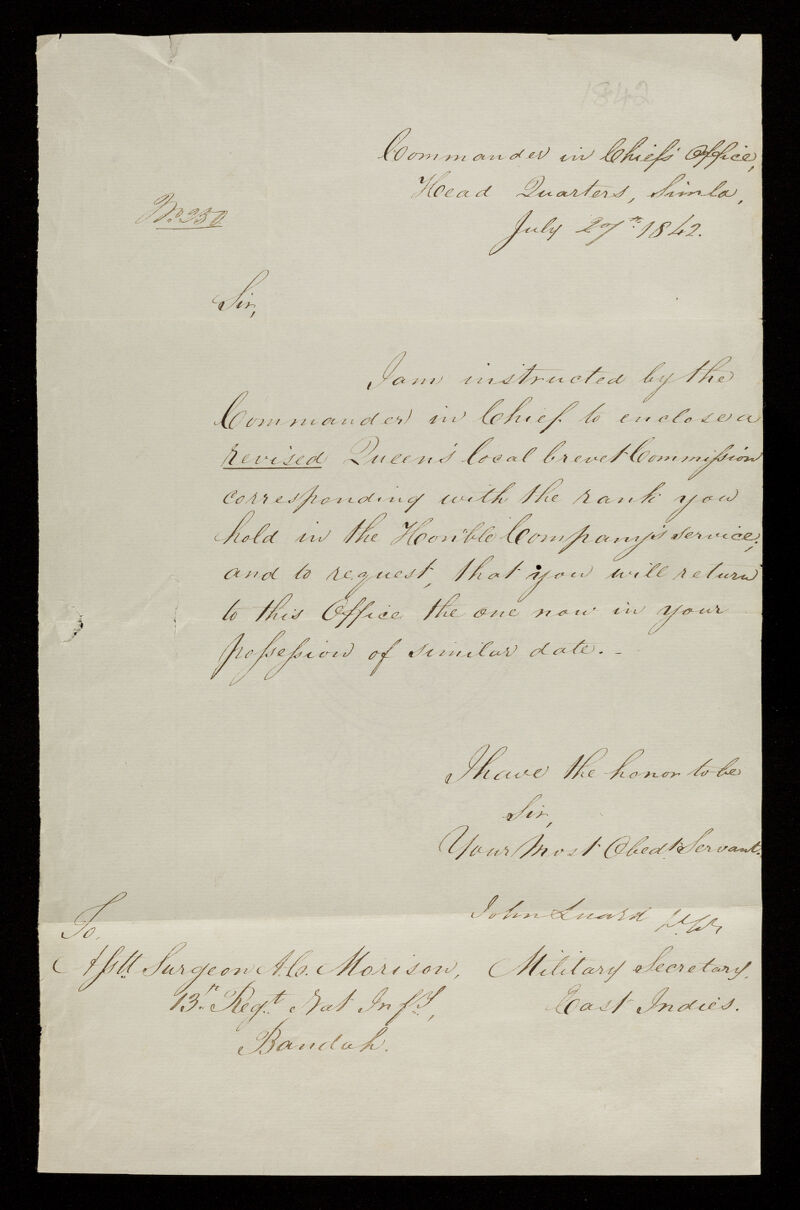 1842
Commander in Chief's Office,
Head Quarters, Simla,
July 27th 1842.
No. 250
Sir,
I am instructed by the
Commander in Chief to enclose a
revised Queen's local brevet Commission
corresponding with the rank you
hold in the Hon'ble Company's service;
and to request, that you will return
to this Office the one now in your
possession of similar date. -
I have the honor to be
Sir,
Your Most Obedt Servant.
John Luard
To,
Asst Surgeon A. Morison, Military Secretary,
13th Regt Nat Infy, East Indies.
Bandah.